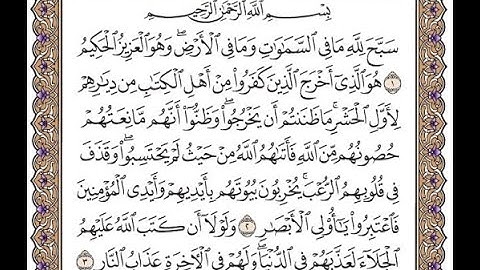 بِسْمِ ٱللَّهِ ٱلرَّحْمَٰنِ ٱلرَّحِيمِ
سَبَّحَ لِلَّهِ مَا فِي ٱلسَّمَٰوَٰتِ وَمَا فِي ٱلْأَرْضِۖ وَهُوَ ٱلْعَزِيزُ ٱلْحَكِيمُ
١ هُوَ ٱلَّذِيٓ أَخْرَجَ ٱلَّذِينَ كَفَرُوا۟ مِنْ أَهْلِ ٱلْكِتَٰبِ مِن دِيَٰرِهِمْ
لِأَوَّلِ ٱلْحَشْرِۚ مَا ظَنَنتُمْ أَن يَخْرُجُوا۟ۖ وَظَنُّوٓا۟ أَنَّهُم مَّانِعَتُهُمْ
حُصُونُهُم مِّنَ ٱللَّهِ فَأَتَىٰهُمُ ٱللَّهُ مِنْ حَيْثُ لَمْ يَحْتَسِبُوا۟ۖ وَقَذَفَ
فِي قُلُوبِهِمُ ٱلرُّعْبَۚ يُخْرِبُونَ بُيُوتَهُم بِأَيْدِيهِمْ وَأَيْدِي ٱلْمُؤْمِنِينَ
فَٱعْتَبِرُوا۟ يَٰٓأُو۟لِي ٱلْأَبْصَٰرِ ٢ وَلَوْلَآ أَن كَتَبَ ٱللَّهُ عَلَيْهِمُ
ٱلْجَلَآءَ لَعَذَّبَهُمْ فِي ٱلدُّنْيَاۖ وَلَهُمْ فِي ٱلْءَاخِرَةِ عَذَابُ ٱلنَّارِ ٣